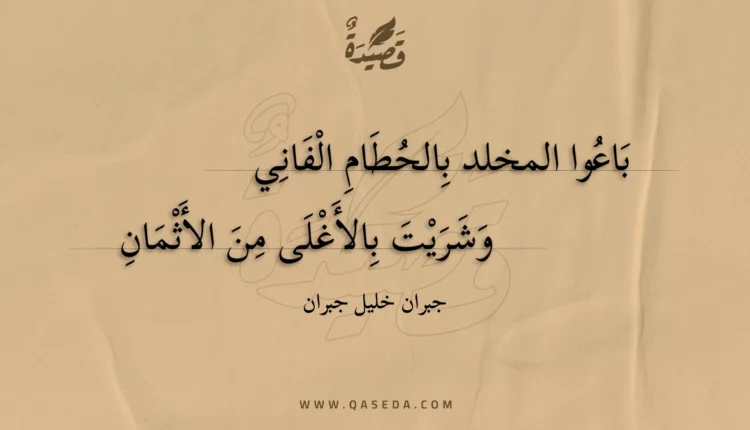 قَصِيدَةٌ
بَاعُوا المخلد بِالحُطَامِ الْفَانِي
وَشَرَيْتَ بِالأَغْلَى مِنَ الأَثْمَانِ
جبران خليل جبران
WWW.QASEDA.COM